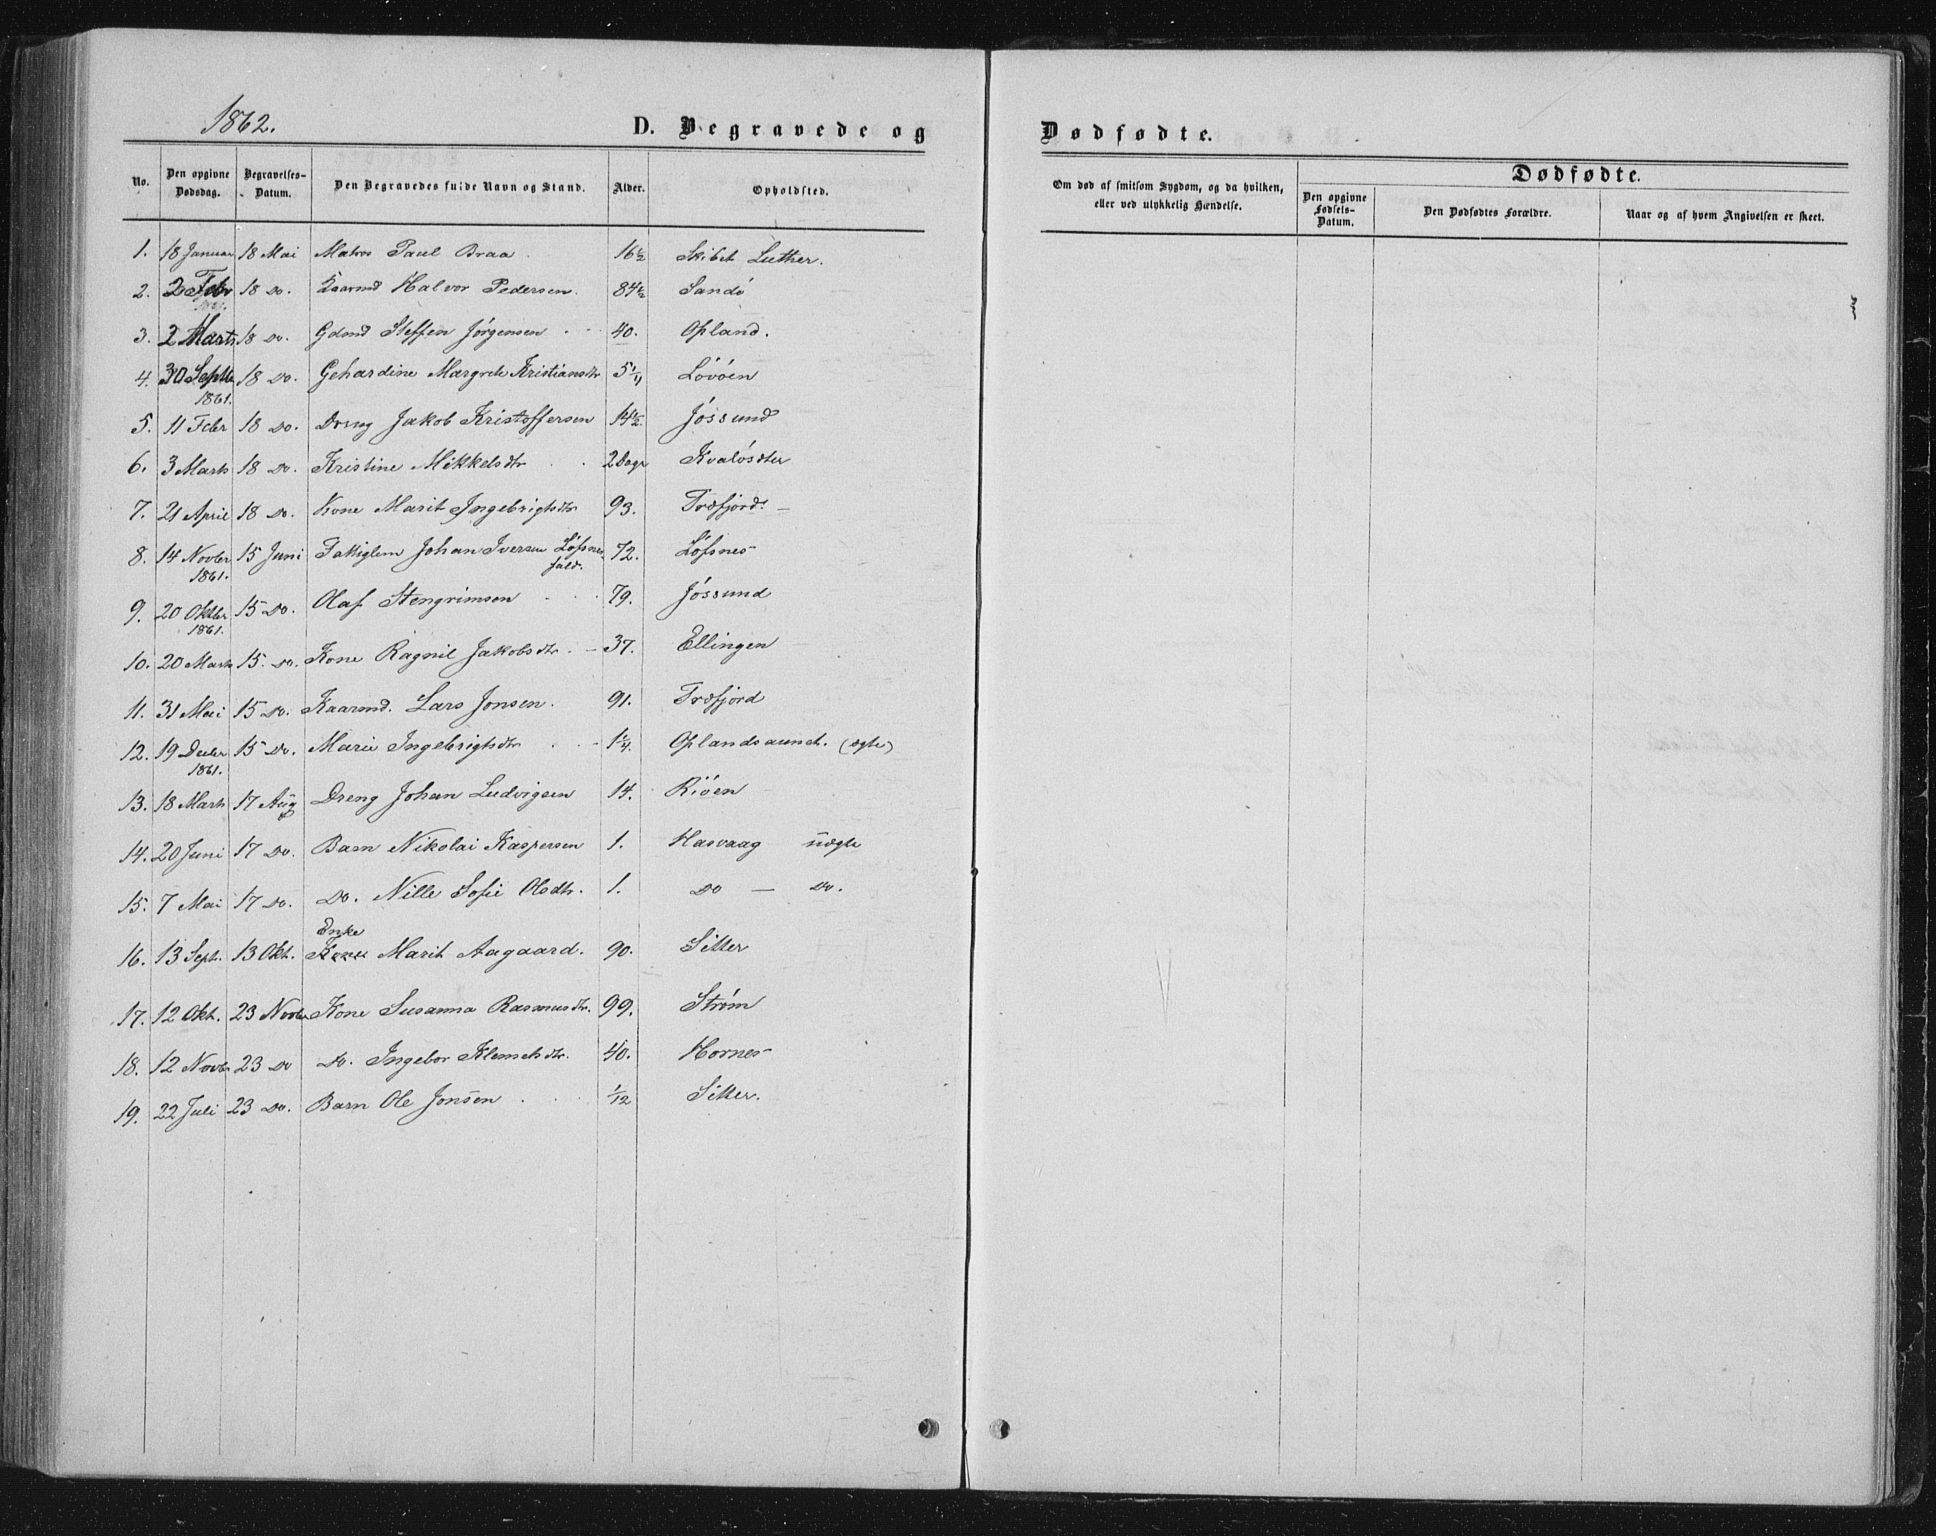 1862.
D. Begravede og
Dødfødte.
No. Den opgivne Dødsdag. Begravelses-Datum. Den Begravedes fulde Navn og Stand. Alder. Opholdsted.
Om død af smitsom Sygdom, og da hvilken, eller ved ulykkelig Hændelse.
Dødfødte.
Den opgivne Fødsels-Datum. Den Dødfødtes Forældre. Naar og af hvem Angivelsen er skeet.
1. 18 Januar 18 Mai Matros Paul Braa 16½ Skibet Luther.
2. 2 Febr 18 Do. Kaarmd Halvor Pedersen. 84½ Sandö
3. 2 Marts 18 Do. Gdmd Steffen Jörgensen 40. Opland.
4. 30 Septbr 1861. 18 Do. Gehardine Margrete Kristiansdtr 5 1/11 Lövöen
5. 11 Febr 18 Do. Dreng Jakob Kristoffersen 14½ Jössund
6. 3 Marts 18 Do. Kristine Mikkelsdtr 2 Dage Kvalösæter
7. 21 April 18 Do. Kone Marit Ingebrigtsdtr 93. Træfjord.
8. 14 Novbr 1861. 15 Juni Fattiglem Johan Iversen Löfsnes fald. 72. Löfsnes
9. 20 Oktbr 1861. 15 Do. Olaf Stengrimsen 79. Jössund
10. 20 Marts 15. Do. Kone Ragnil Jakobsdtr. 37. Ellingen
11. 31 Mai 15 Do. Kaarmd. Lars Jonsen. 91. Træfjord
12. 19 Decbr 1861. 15 Do. Marie Ingebrigtsdtr 1¼ Oplandsaunet. (ægte)
13. 18 Marts 17 Aug Dreng Johan Ludvigsen 14. Riöen
14. 20 Juni 17 Do. Barn Nikolai Kaspersen 1. Hasvaag uægte
15. 7 Mai 17 Do. Do. Nille Sofie Olsdtr. 1. Do — Do.
16. 13 Sept. 13 Okt. Enke Kone Marit Aagaard. 90. Sitter
17. 12 Okt. 23 Novbr Kone Susanna Rasmusdtr. 99. Ström
18. 12 Novbr 23 Do Do. Ingebor Klemetsdtr. 40. Hornes
19. 22 Juli 23 Do. Barn Ole Jonsen 1/12 Sitter.